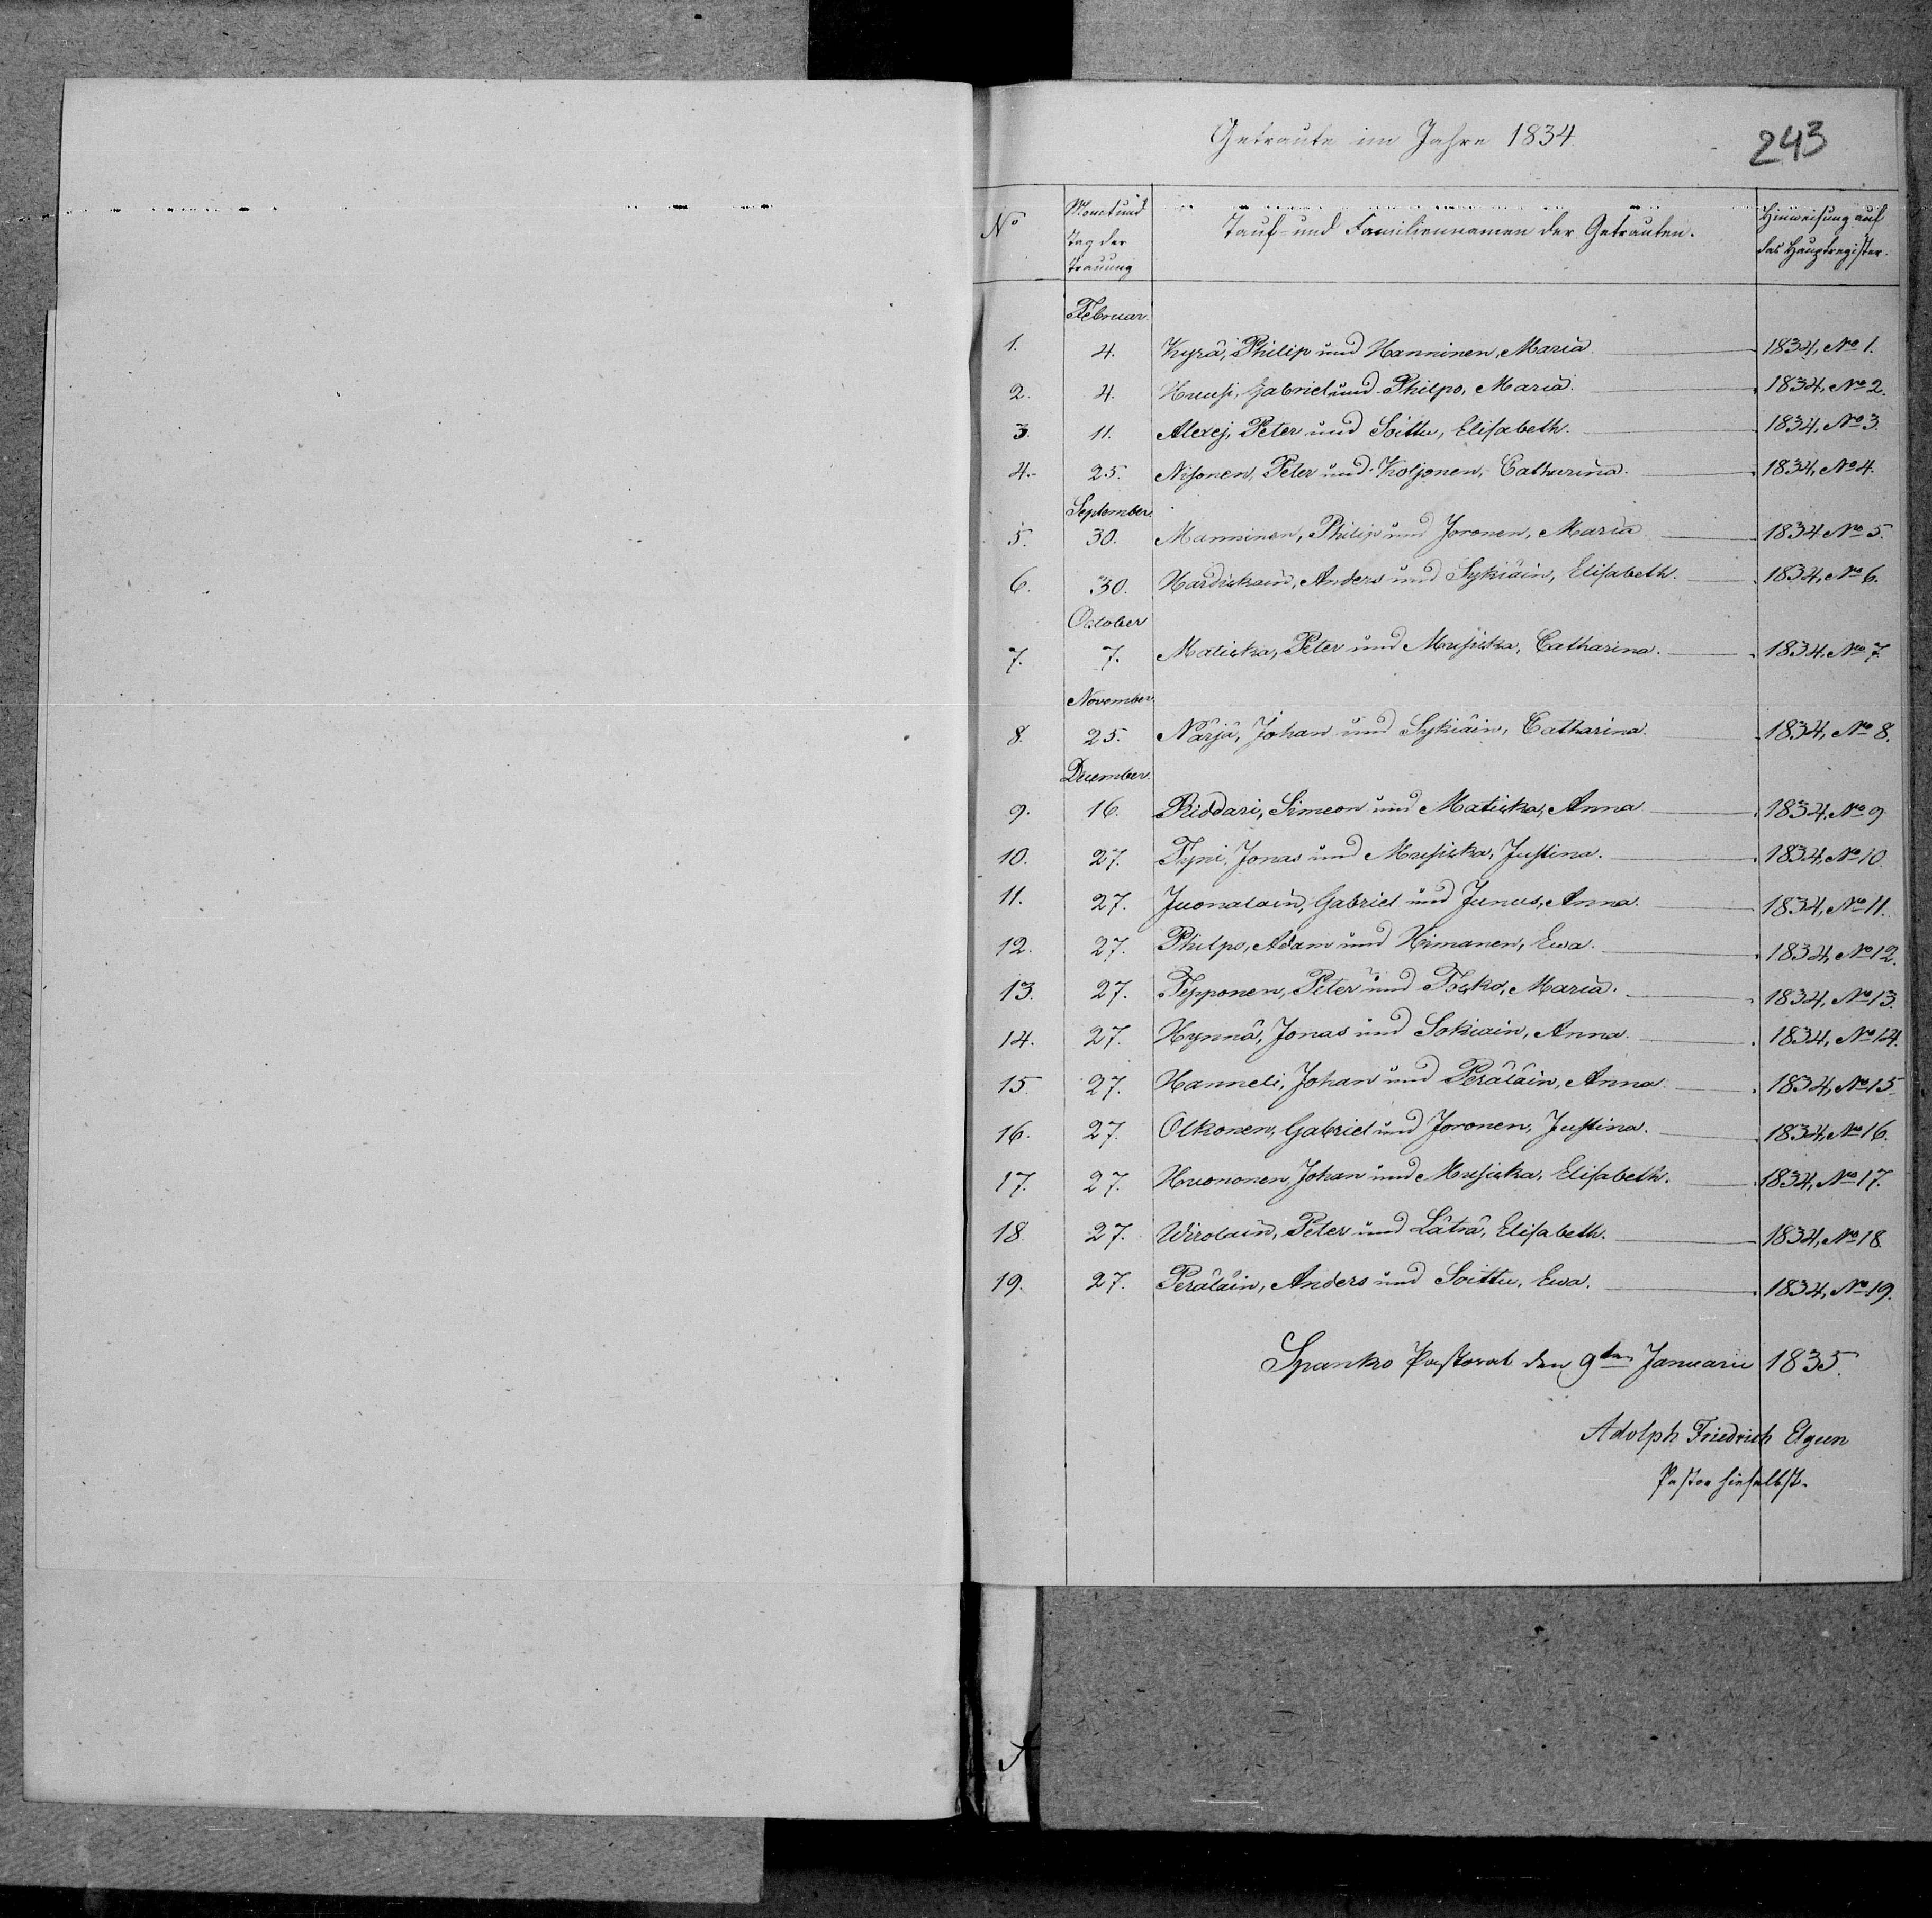 Getraute im Jahre 1834.
243
No
Monat und
Tag der
Trauung
Tauf- und Familiennamen der Getrauten.
Hinweisung auf
das Hauptregister.
Februar.
1. 4. Kyrä, Philip und Hanninen, Maria 1834, No 1.
2. 4. Huusi, Gabriel und Philpo, Maria. 1834, No 2.
3. 11. Alexej, Peter und Soittu, Elisabeth. 1834, No 3.
4. 25. Nisonen, Peter und Koljonen, Catharina. 1834, No 4.
September.
5. 30. Manninen, Philip und Joronen, Maria 1834 No 5.
6. 30. Hardikain, Anders und Sykiäin, Elisabeth. 1834, No 6.
October
7. 7. Matikka, Peter und Musikka, Catharina. 1834, No 7.
November.
8. 25. Närjä, Johan und Sykiäin, Catharina. 1834, No 8.
December.
9. 16. Riddari, Simeon und Matikka, Anna 1834, No 9.
10. 27. Typi, Jonas und Musikka, Justina. 1834, No 10.
11. 27. Juonalain, Gabriel und Junus, Anna. 1834, No 11.
12. 27. Philpo, Adam und Himanen, Ewa. 1834, No 12.
13. 27. Tepponen, Peter und Maria. 1834, No 13.
14. 27. Hynnä, Jonas und Sokiain, Anna. 1834, No 14.
15. 27. Hanneli, Johan und Peräläin, Anna 1834, No 15.
16. 27. Olkonen, Gabriel und Joronen, Justina. 1834, No 16.
17. 27. Huononen, Johan und Musikka, Elisabeth. 1834, No 17.
18. 27. Wirolain, Peter und Läträ, Elisabeth. 1834, No 18.
19. 27. Peräläin, Anders und Soittu, Ewa. 1834, No 19.
Spanko Pastorat den 9ten Januarii 1835.
Adolph Friedrich Elgren
Pastor hieselbst.